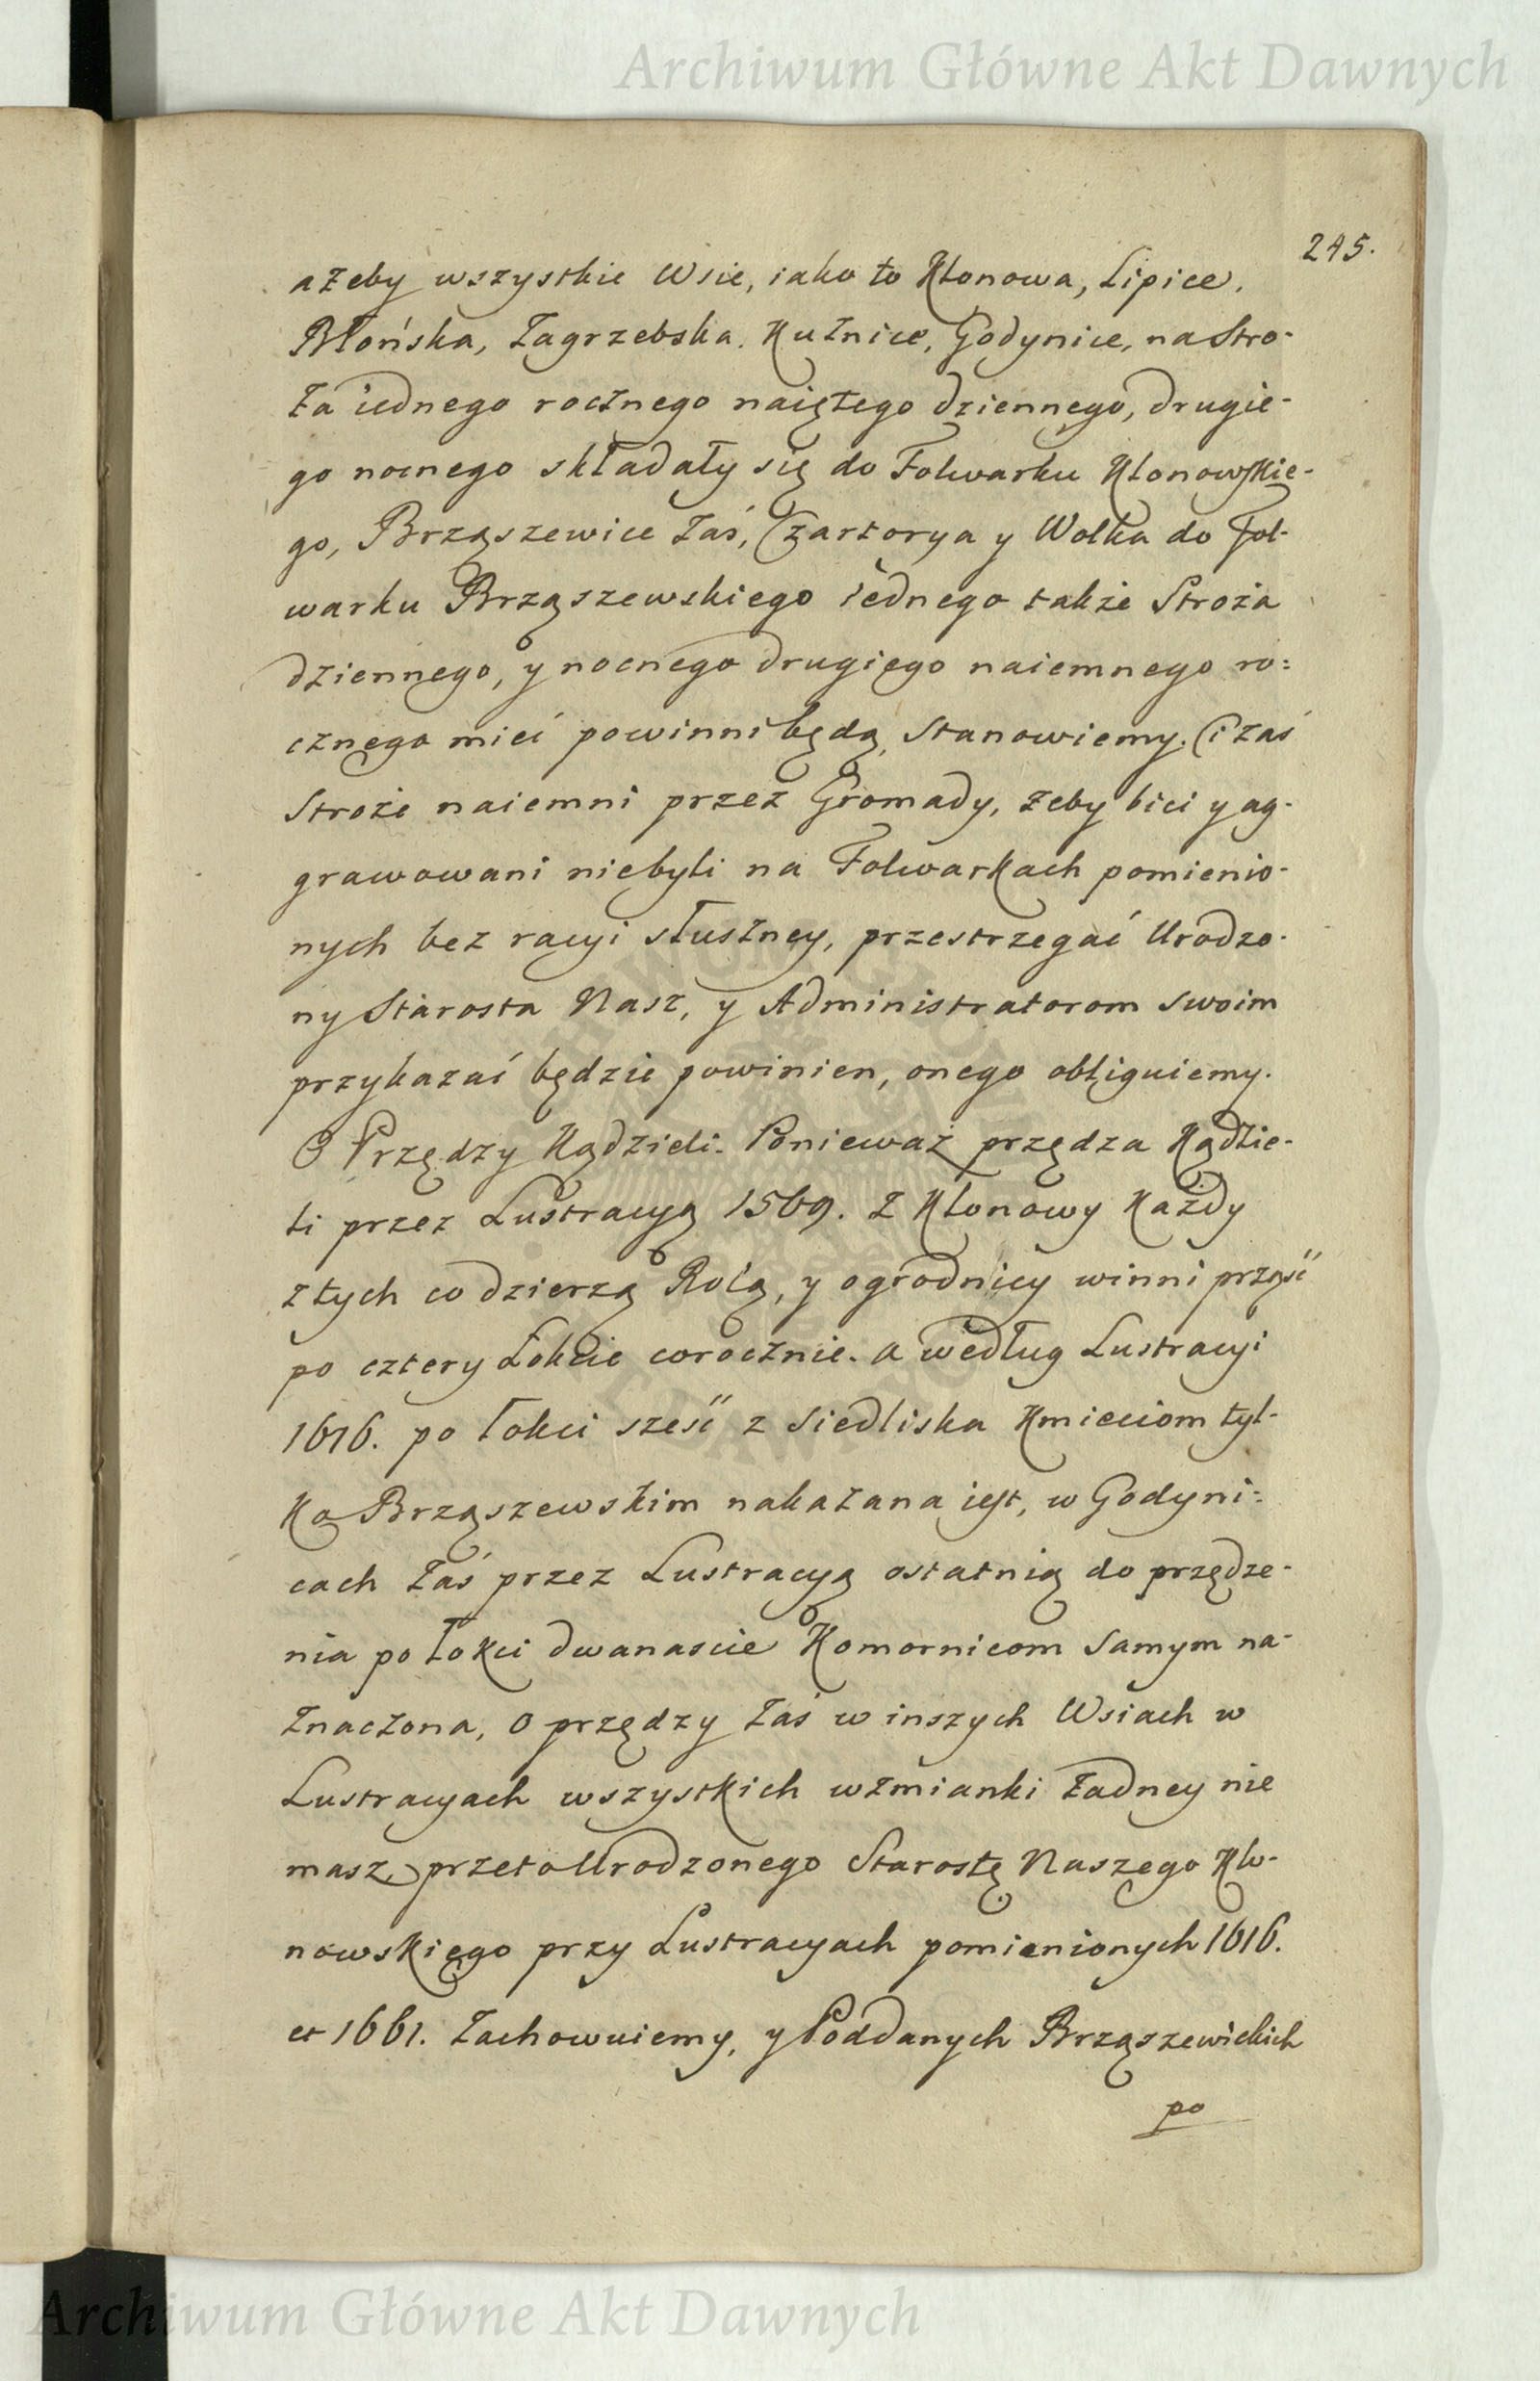 Archiwum Główne Akt Dawnych
245.
ażeby wszystkie Wsie, iako to Klonowa, Lipice,
Błońska, Zagrzebska, Kuźnice, Godynice, na Stro-
ża iednego rocznego naiętego dziennego, drugie-
go nocnego składały się do Folwarku Klonowskie-
go, Brząszewice zaś, Czartorya y Wolka do Fol-
warku Brząszewskiego iednego także Stroża
dziennego, y nocnego drugiego naiemnego ro=
cznego mieć powinni będą, Stanowiemy. Ci zaś
Stroże naiemni przez Gromady, żeby bici y ag-
grawowani niebyli na Folwarkach pomienio-
nych bez racyi słuszney, przestrzegać Urodzo-
ny Starosta Nasz, y Administratorom swoim
przykazać będzie powinien, onego obliguiemy.
O Przędzy Kądzieli. Ponieważ przędza Kądzie-
li przez Lustracyą 1569. Z Klonowy Każdy
z tych co dzierzą Rolą, y ogrodnicy winni prząść
po cztery Łokcie corocznie. a według Lustracyi
1616. po łokci sześć z Siedliska Kmieciom tyl-
Ko Brząszewskim nakazana iest, w Godyni=
cach zaś przez Lustracyą ostatnią do przędze-
nia po łokci dwanascie Komornicom Samym na-
znaczona, o przędzy zaś w inszych Wsiach w
Lustracyach wszystkich wzmianki żadney nie
masz, przeto Urodzonego Starostę Naszego Klo-
nowskiego przy Lustracyach pomienionych 1616.
et 1661. Zachowuiemy, y Poddanych Brząszewickich
po
Archiwum Główne Akt Dawnych